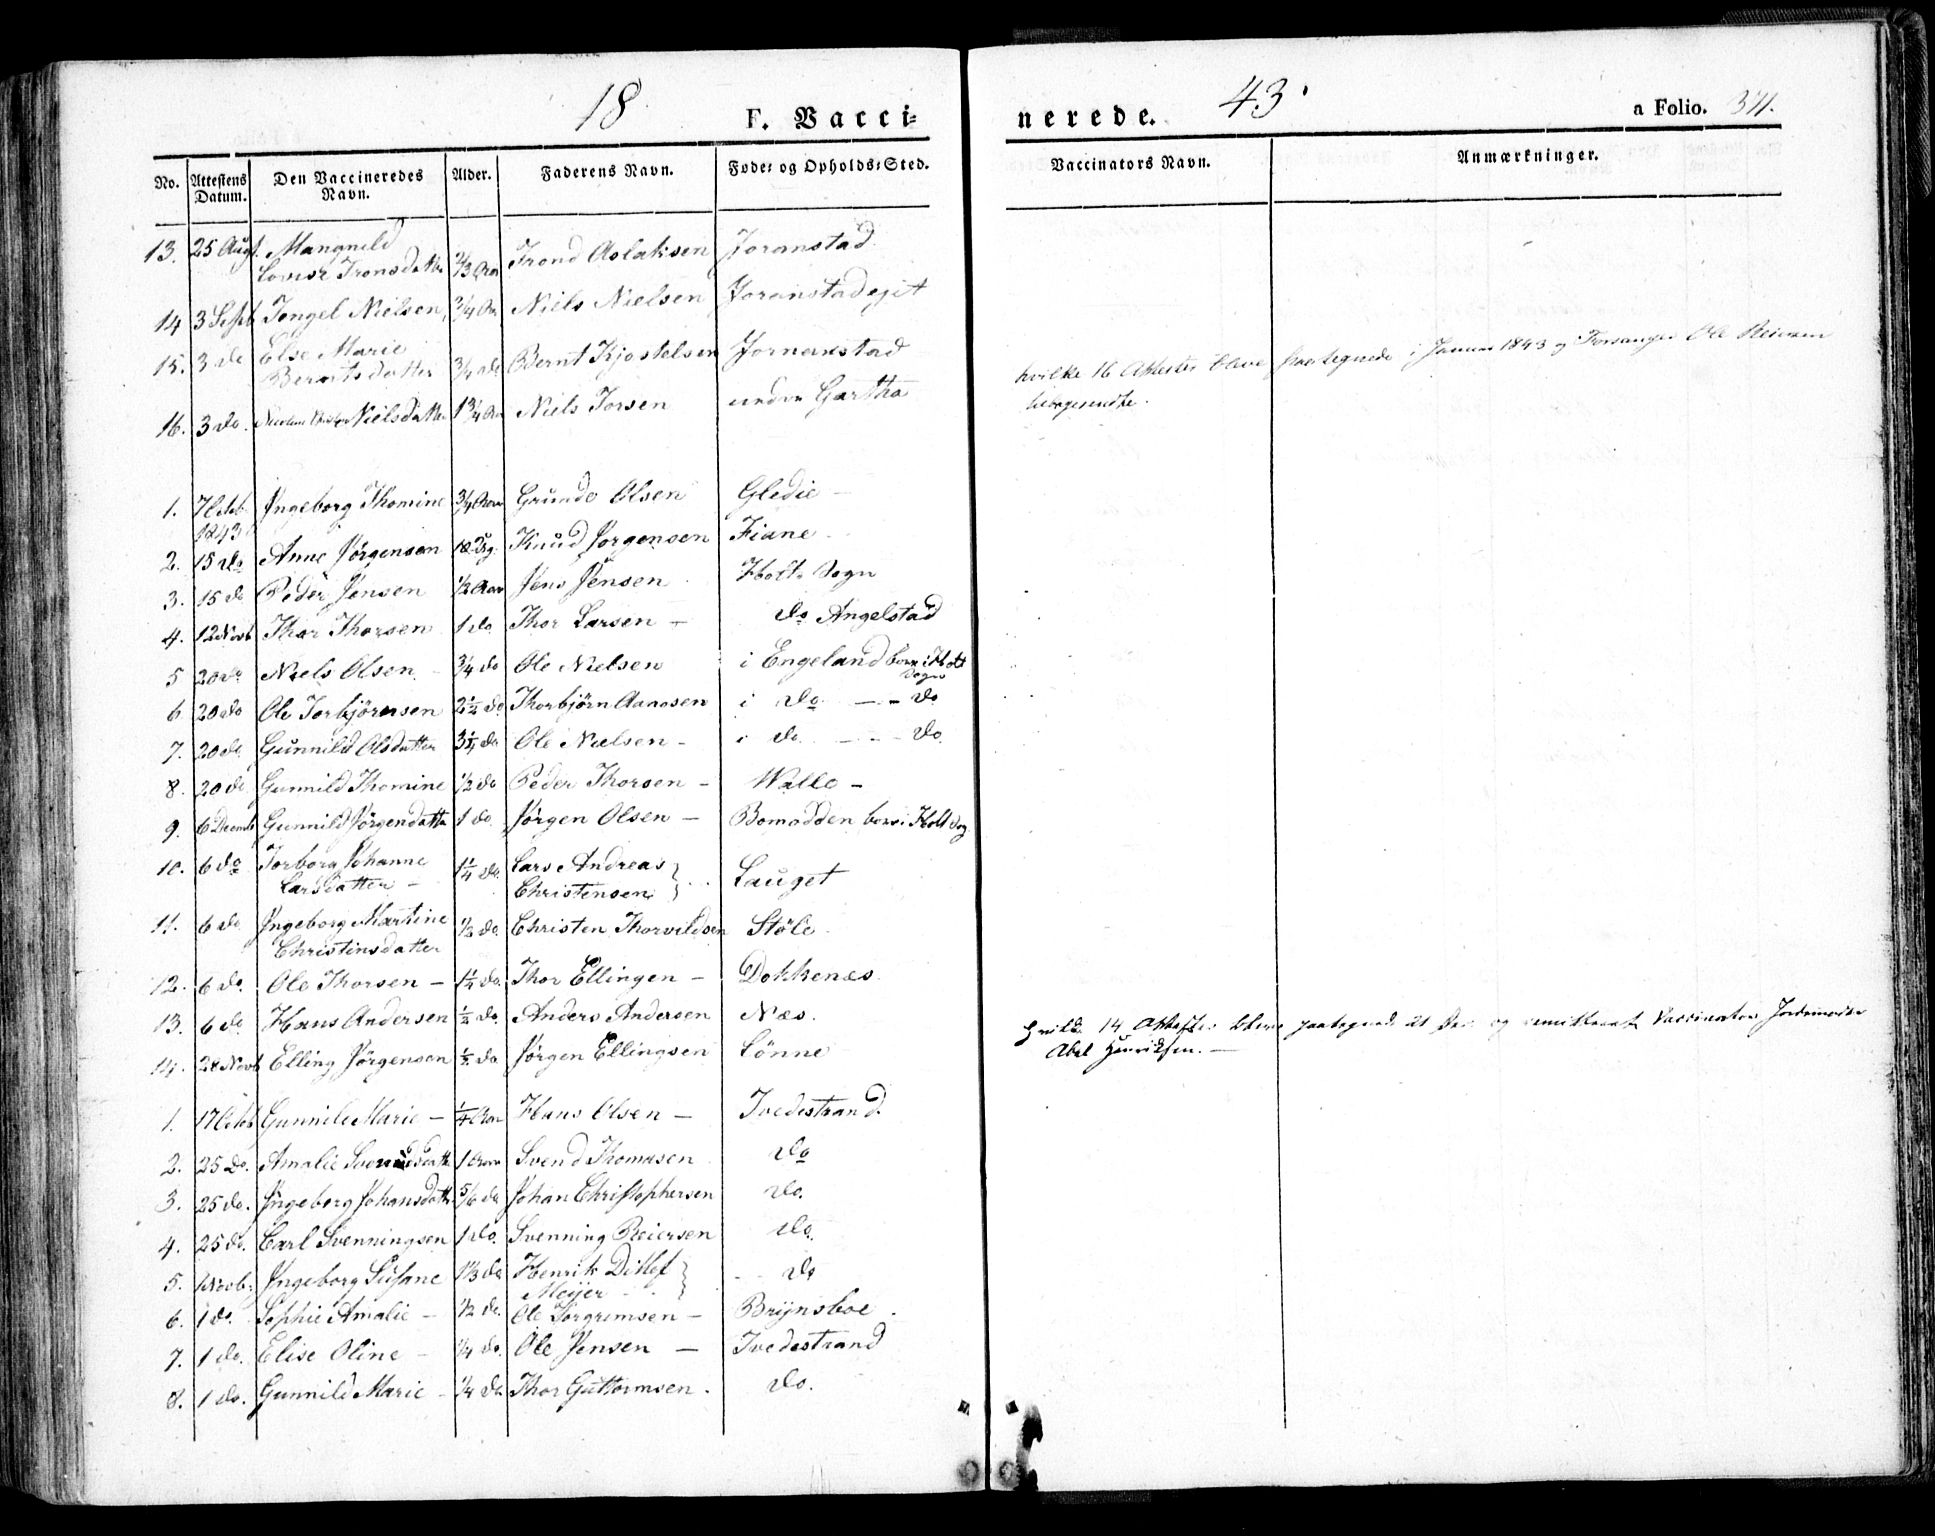 18 43.
F. Vacci=nerede. a Folio. 371.
No. Attestens Datum. Den Vaccineredes Navn. Alder. Faderens Navn. Føde= og Opholds=Sted. Vaccinators Navn. Anmærkninger.
13. 25 Augt. Mangnild
Lovise Tronsdatter 2/3 Aar Trond Aslaksen Joranstad
14 3 Septb Tengel Nielsen, 3/4 Aar Niels Nielsen Joranstadejet
15. 3 do Else Marie
Berntsdatter 3/4 do Bernt Kjostelsen Jornanstad
16. 3 do. Nielsdatter 1 3/4 Aar Niels Torsen under Gartha
hvilke 16 Attester bleve paategnede i Januar 1843 og Forsanger Ole Reiersen
tilbagesendte.
1. 7 Octb. 1843 Ingeborg Thomine 3/4 Aar Grunde Olsen Gledie –
2. 15 do Anne Jørgensen 18 Knud Jorgensen Fiane
3. 15 do Peder Jensen 1/2 Aar Jens Jensen Holts Sogn
4. 12 Novb Thor Thorsen 1 do Thor Larsen – do Angelstad
5 20 do Niels Olsen 3/4 do Ole Nielsen i Engeland boer i Holt
Sogn
6 20 do Ole Torbjörnsen 2 1/2 do Thorbjörn Aanosen i do – – do
7. 20 do Gunnild Olsdatter 3 1/4 do Ole Nielsen – i do – – do
8. 20 do Gunnild Thomine 1/2 do Peder Thorsen – Walle –
9. 6 Decemb Gunnild Jörgendatter 1 do. Jörgen Olsen – Bomodden boer i Holt Sog
10. 6 do Torborg Johanne
Larsdatter – 1 1/4 do. Lars Andreas
Christensen } Lauget
11. 6 do Ingeborg Martine
Christinsdatter 1/2 do. Christen Thorvildsen Støle
12. 6 do. Ole Thorsen – 1 1/4 do. Thor Ellingen – Dokkenæs
13. 6 do Hans Andersen 1/2 do. Anders Andersen Næs.
14. 28 Novb Elling Jörgensen 1/2 do Jörgen Ellingsen Lønne
Hvilke 14 Attester bleve paategnede 21 Dec. og remitteret Vaccinator Jordemoder
Abel Henriksen. –
1. 17 Octb Gunnild Marie – 1/4 Aar Hans Olsen – Tvedestrand
2. 25 do. Amalie Svendsdatter 1 Aar Svend Thomasen do
3. 25 do. Ingeborg Johansdatter 5/6 do Johan Christophersen do.
4. 25 do. Carl Svenningsen 1 do. Svenning Reiersen do.
5. 1 Novb. Ingeborg Susane 1 1/3 do Henrik Ditlef
Meijer } do
6. 1 do. Sophie Amalie – 1/2 do. Ole Torgrimsen – Brijnsboe
7. 1 do. Elise Oline – 1/4 do. Ole Jensen – Tvedestrand
8. 1 do. Gunnild Marie – 1/4 do Thor Guttormsen. do.